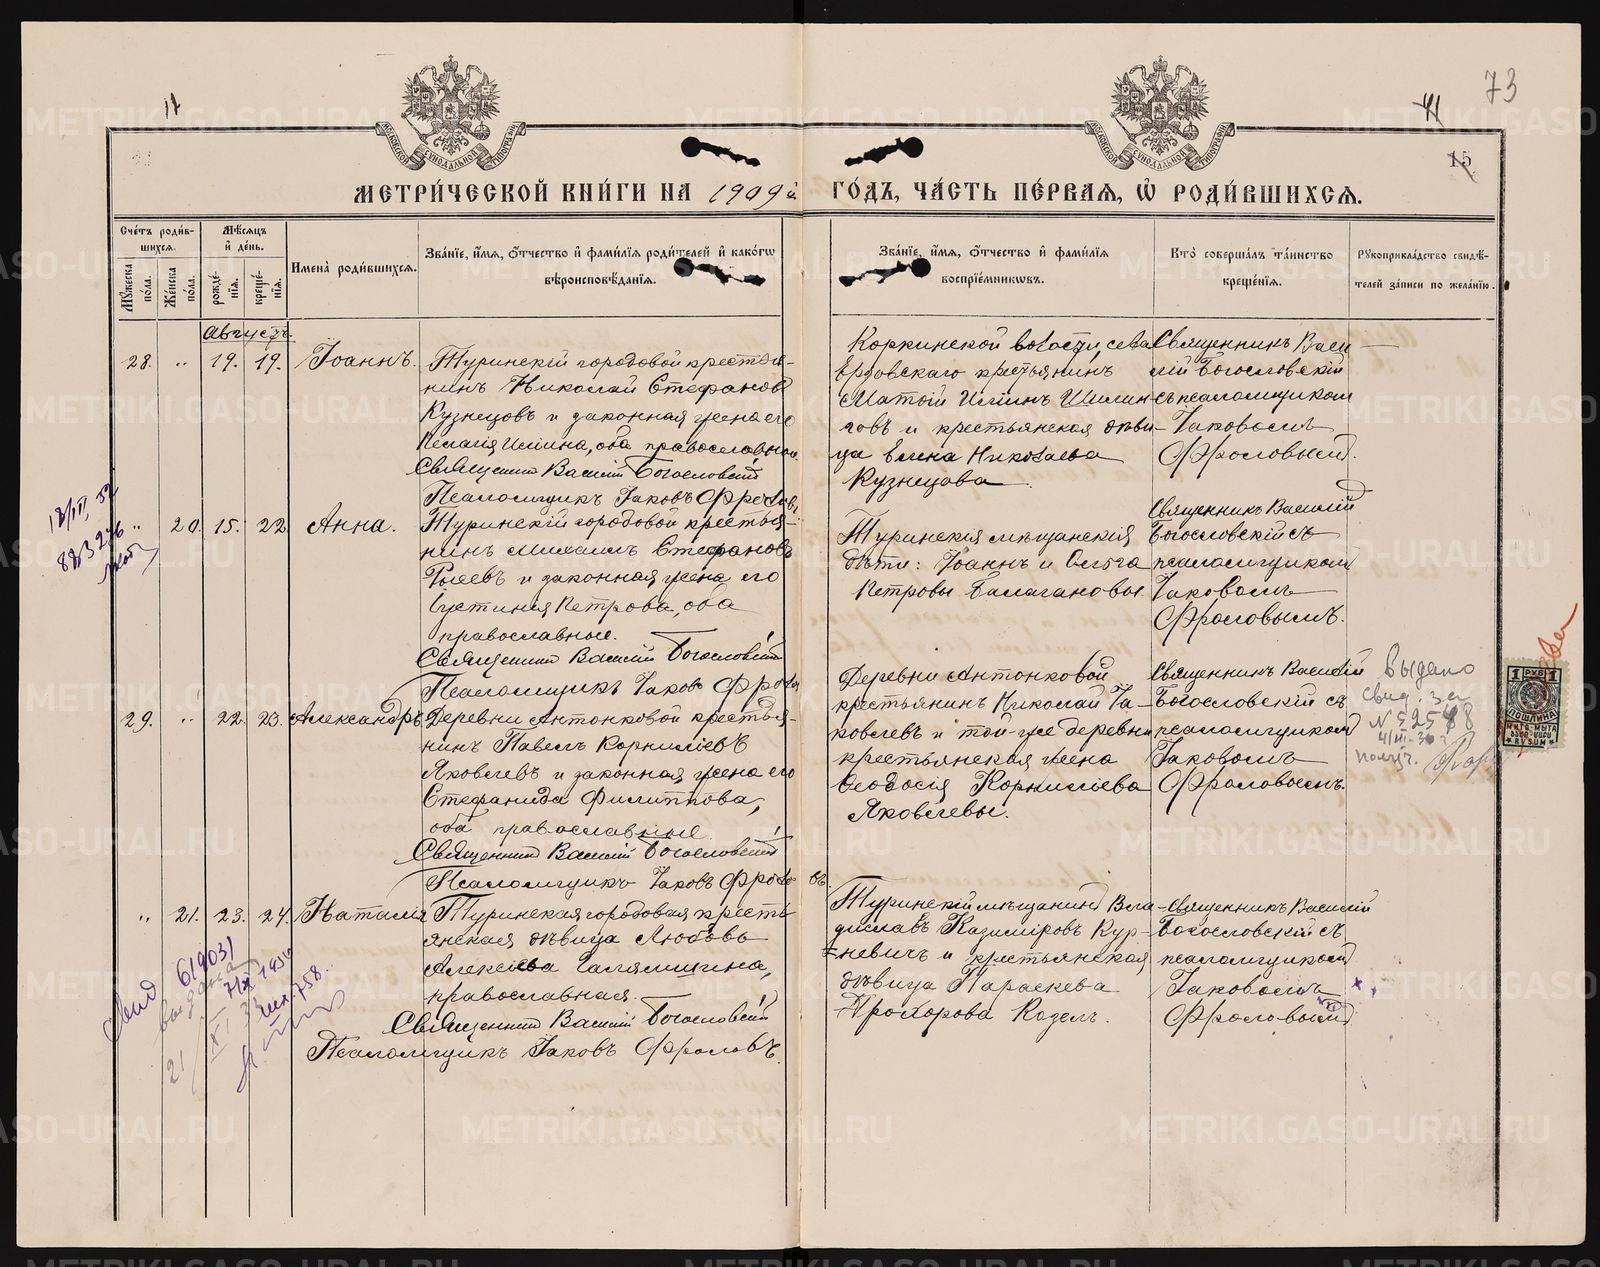 11
41
73
15
МЕТРИ́ЧЕСКОЙ КНИ́ГИ НА 1909й
ГО́ДЪ, ЧА́СТЬ ПЕ́РВАЯ, Ѡ҆ РОДИ́ВШИХСЯ.
Сче́тъ роди́в-
шихся.
Мѣ́сяцъ
и҆ де́нь.
Мꙋ́жеска по́ла.
Же́нска по́ла.
рожде́-
нїя.
креще́-
нїя.
Имена̀ роди́вшихся.
Зва́нїе, и҆́мя, ѻ҆́тчество и҆ фами́лїѧ роди́телей и҆ како́гѡ
вѣроисповѣ́данїя.
Зва́нїе, и҆́мя, ѻ҆́тчество и҆ фами́лїѧ
воспрїе́мникѡвъ.
Кто̀ соверша́лъ та́инство
креще́нїя.
Рꙋкоприкла́дство свидѣ́-
телей за́писи по жела́нїю.
Августъ
28. " 19. 19. Іоаннъ.
Туринскій городовой крестья-
нинъ Николай Стефановъ
Кузнецовъ и законная жена его
Пелагія Ильина, оба православные
Священникъ Василій Богословскій
Псаломщикъ Іаковъ Фроловъ
Коркинской волости, села
Ердовскаго крестьянинъ
Матѳій Ильинъ Шилин-
говъ и крестьянская дѣви-
ца Елена Николаева
Кузнецова
Священникъ Васи
лій Богословскій
съ псаломщиком
Іаковомъ
Фроловымъ.
" 20. 15. 22. Анна.
Туринскій городовой крестья-
нинъ Михаилъ Стефановъ
и законная жена его
Іустинія Петрова, оба
православные.
Священникъ Василій Богословскій
Псаломщикъ Іаковъ Фролов
Туринскія мѣщанскія
дѣти: Іоаннъ и Ольга
Петровы Балагановы
Священникъ Василій
Богословскій съ
псаломщикомъ
Іаковомъ
Фроловымъ.
29. " 22. 23. Александръ
Деревни Антонковой крестья-
нинъ Павелъ Корниліевъ
Яковлевъ и законная жена его
Стефанида Филиппова,
оба православные
Священникъ Василій Богословскій
Псаломщикъ Іаковъ Фроловъ
Деревни Антонковой
крестьянинъ Николай Іа-
ковлевъ и той-же деревни
крестьянская жена
Ѳеодосія Корниліева
Яковлевы.
Священникъ Василій
Богословскій съ
псаломщикомъ
Іаковомъ
Фроловымъ.
Выдано
свид. за
4/III-36
1 РУБ 1
ПОШЛИНА
" 21. 23. 24. Наталія
Туринская городовая кресть
янская дѣвица Любовь
Алексѣева Галямшина,
православная.
Священникъ Василій Богословскій
Псаломщикъ Іаковъ Фроловъ.
Туринскій мѣщанинъ Вла-
диславъ Казиміровъ Кур-
невичъ и крестьянская
дѣвица Параскева
Прохорова Козелъ.
Священникъ Василій
Богословскій съ
псаломщикомъ
Іаковомъ
Фроловымъ
Свид 619031
выдана
METRIKI.GASO-URAL.RU